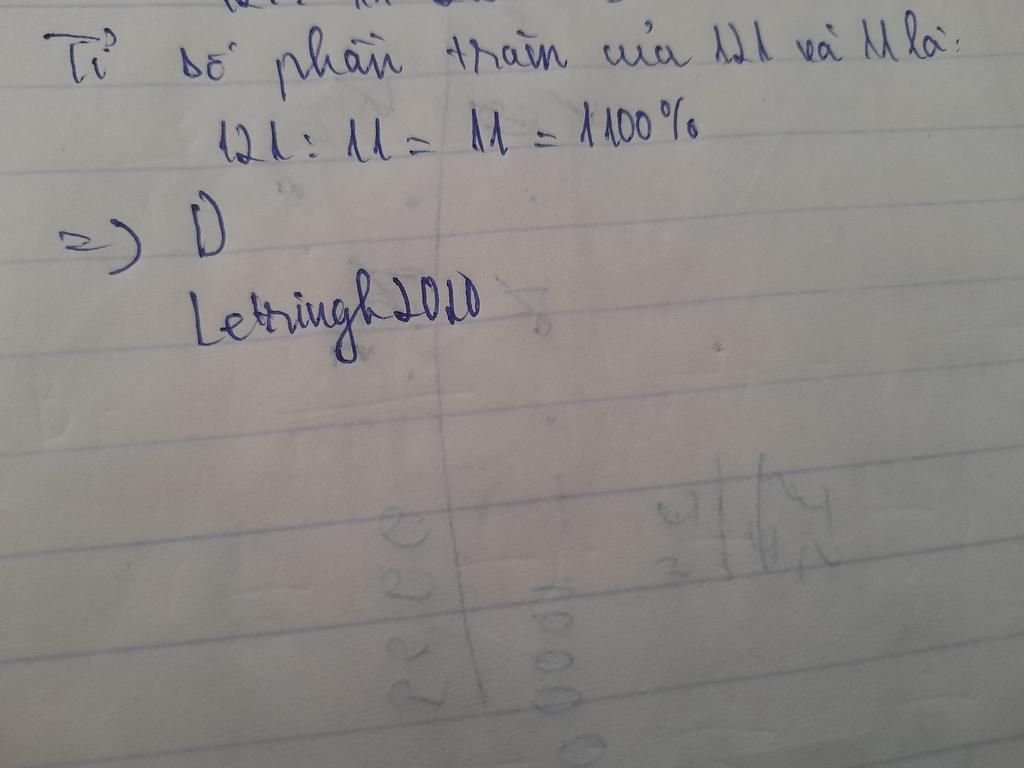 Tỉ số phần trăm của 121 và 11 là:
121 : 11 = 11 = 1100%
=) D
Letringh2010